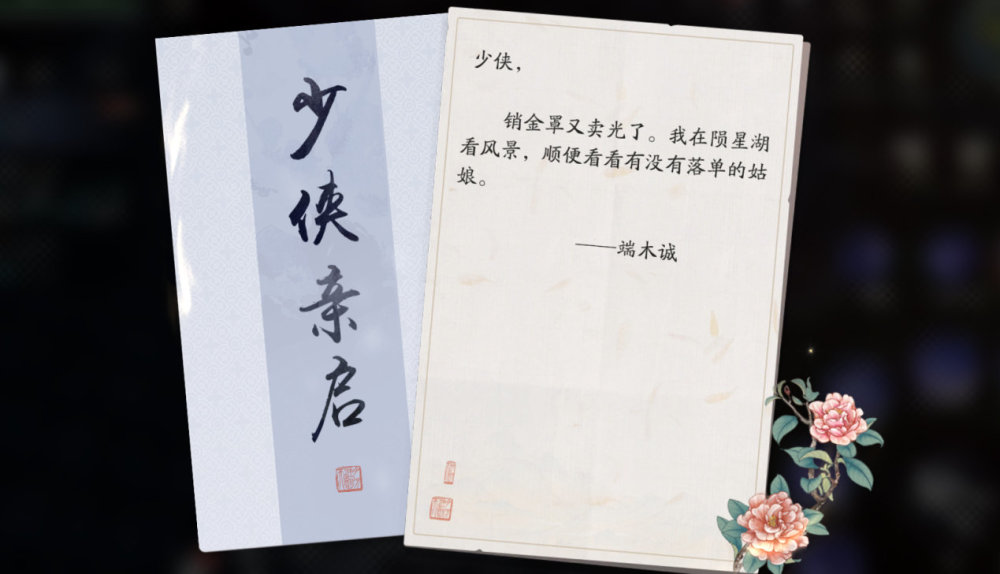 少侠亲启
少侠，
销金罩又卖光了。我在陨星湖
看风景，顺便看看有没有落单的姑
娘。
——端木诚